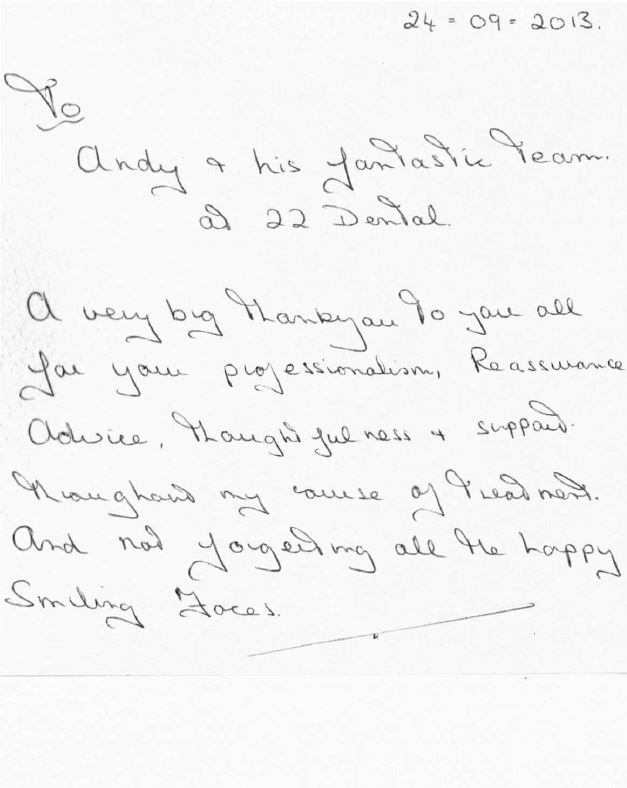 24 = 09 = 2013.
To
Andy & his fantastic Team.
at 22 Dental.
A very big Thankyou To you all
for your professionalism, Reassurance
Advice, Thoughtfulness & support.
Throughout my course of Treatment.
And not forgetting all the happy
Smiling Faces.